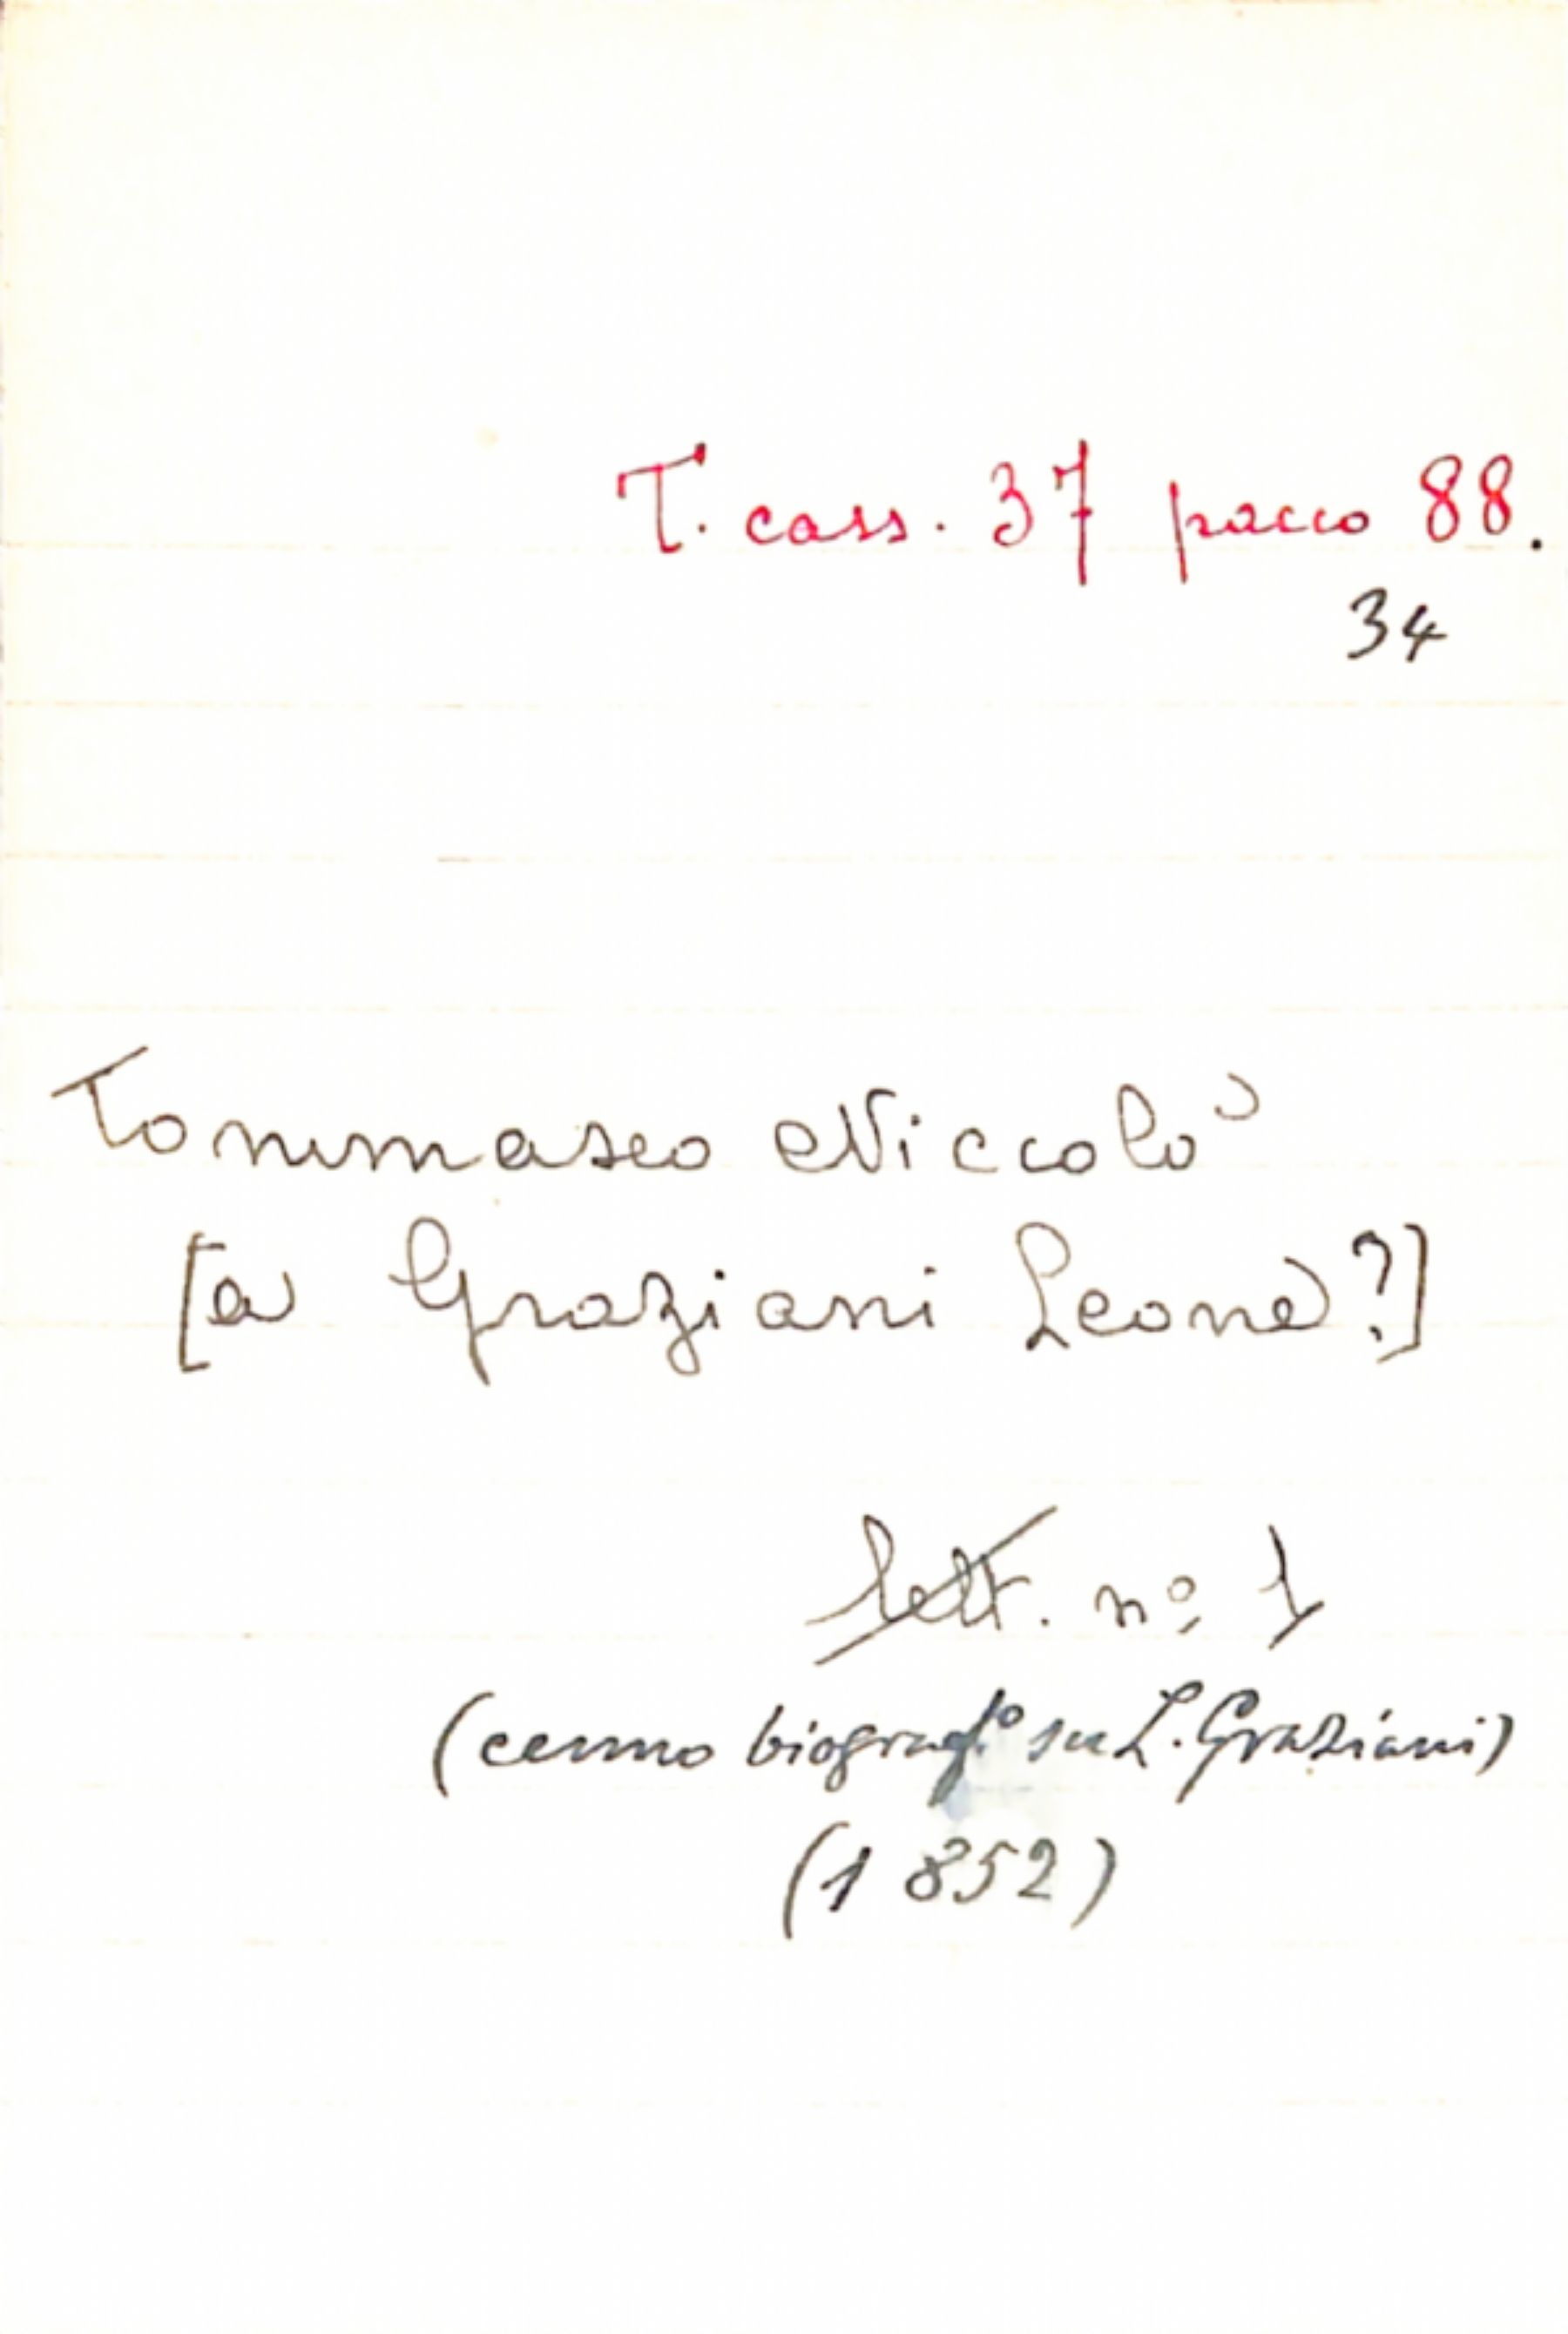 T. cass. 37 pacco 88.
34
Tommaseo Niccolò
[a Graziani Leone?]
lett. nº 1
(cenno biografº su L. Graziani)
(1852)